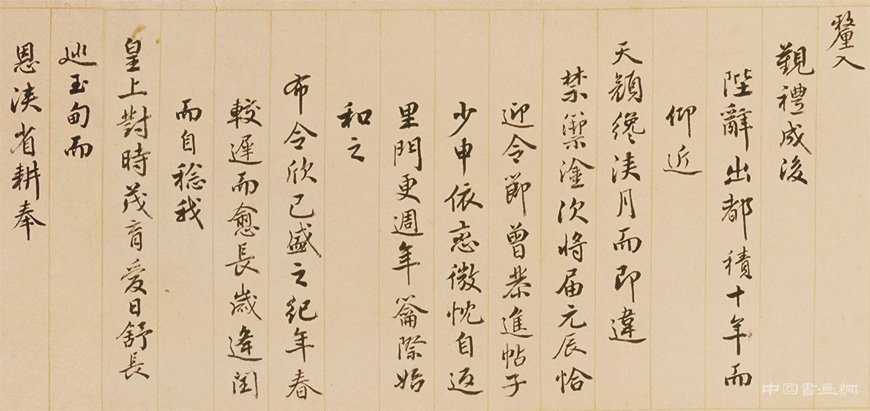 釐入
覲禮成後
陛辭出都積十年而
仰近
天顏纔浹月而即違
禁籞塗次將届元辰恰
迎令節曾恭進帖子
少申依戀微忱自返
里門更週年籥際始
和之
布令欣已盛之紀年春
較遲而愈長歲逢閏
而自稔我
皇上對時茂育愛日舒長
巡玉甸而
恩浹省耕奉
中國書画網